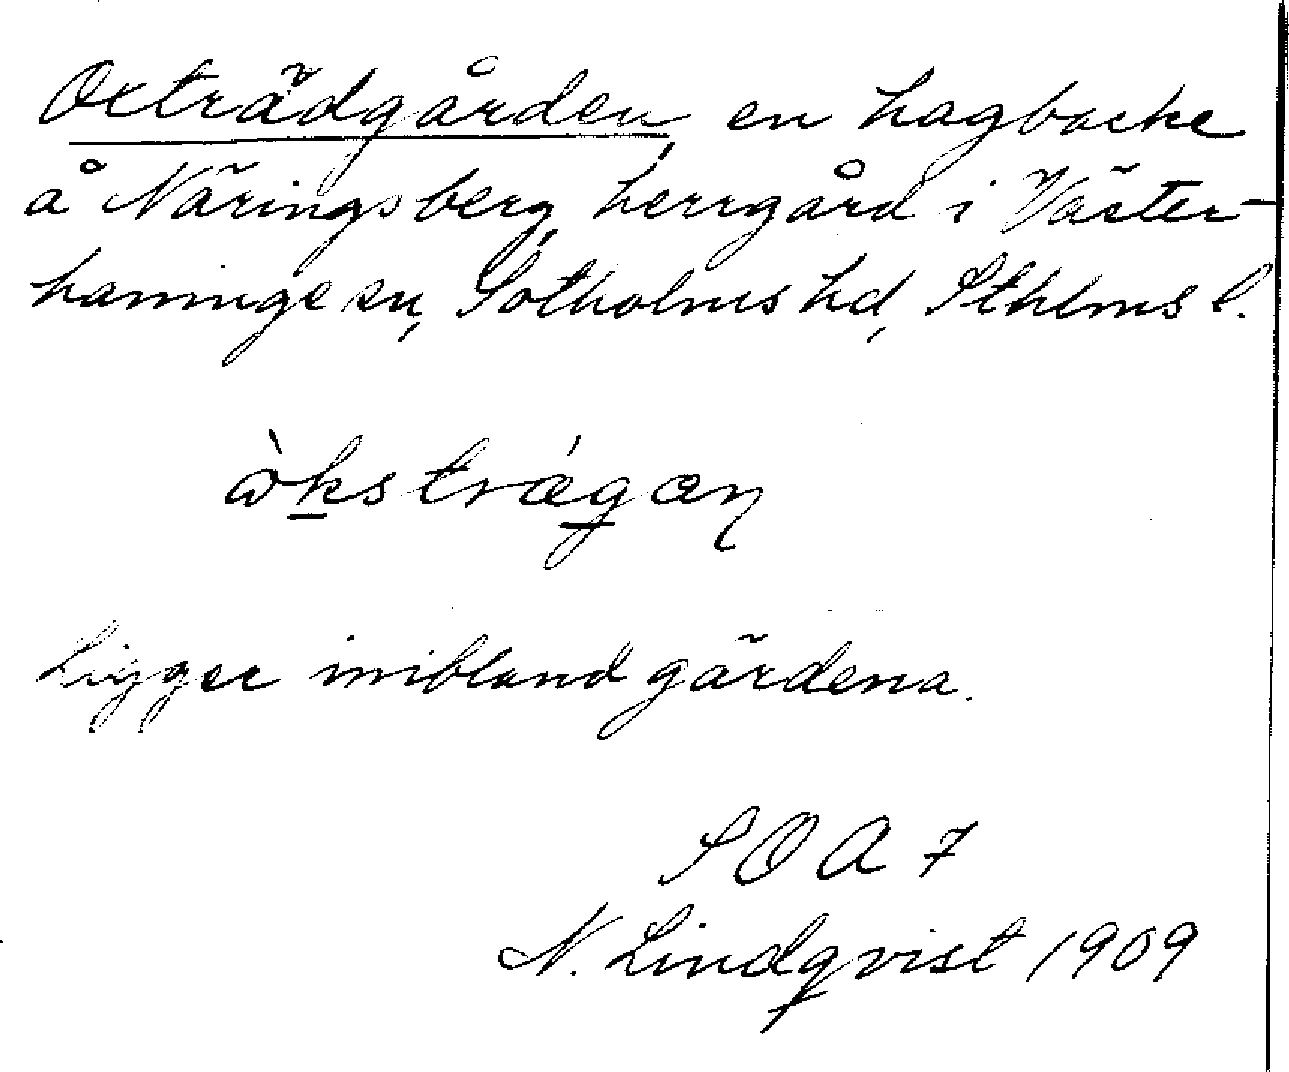 Oxträdgården, en hagbacke
å Näringsberg, herrgård i Väster-
haninge sn, Sotholms hd, Sthlms l.
Ligger inibland gärdena.
SOA 7
N. Lindqvist 1909